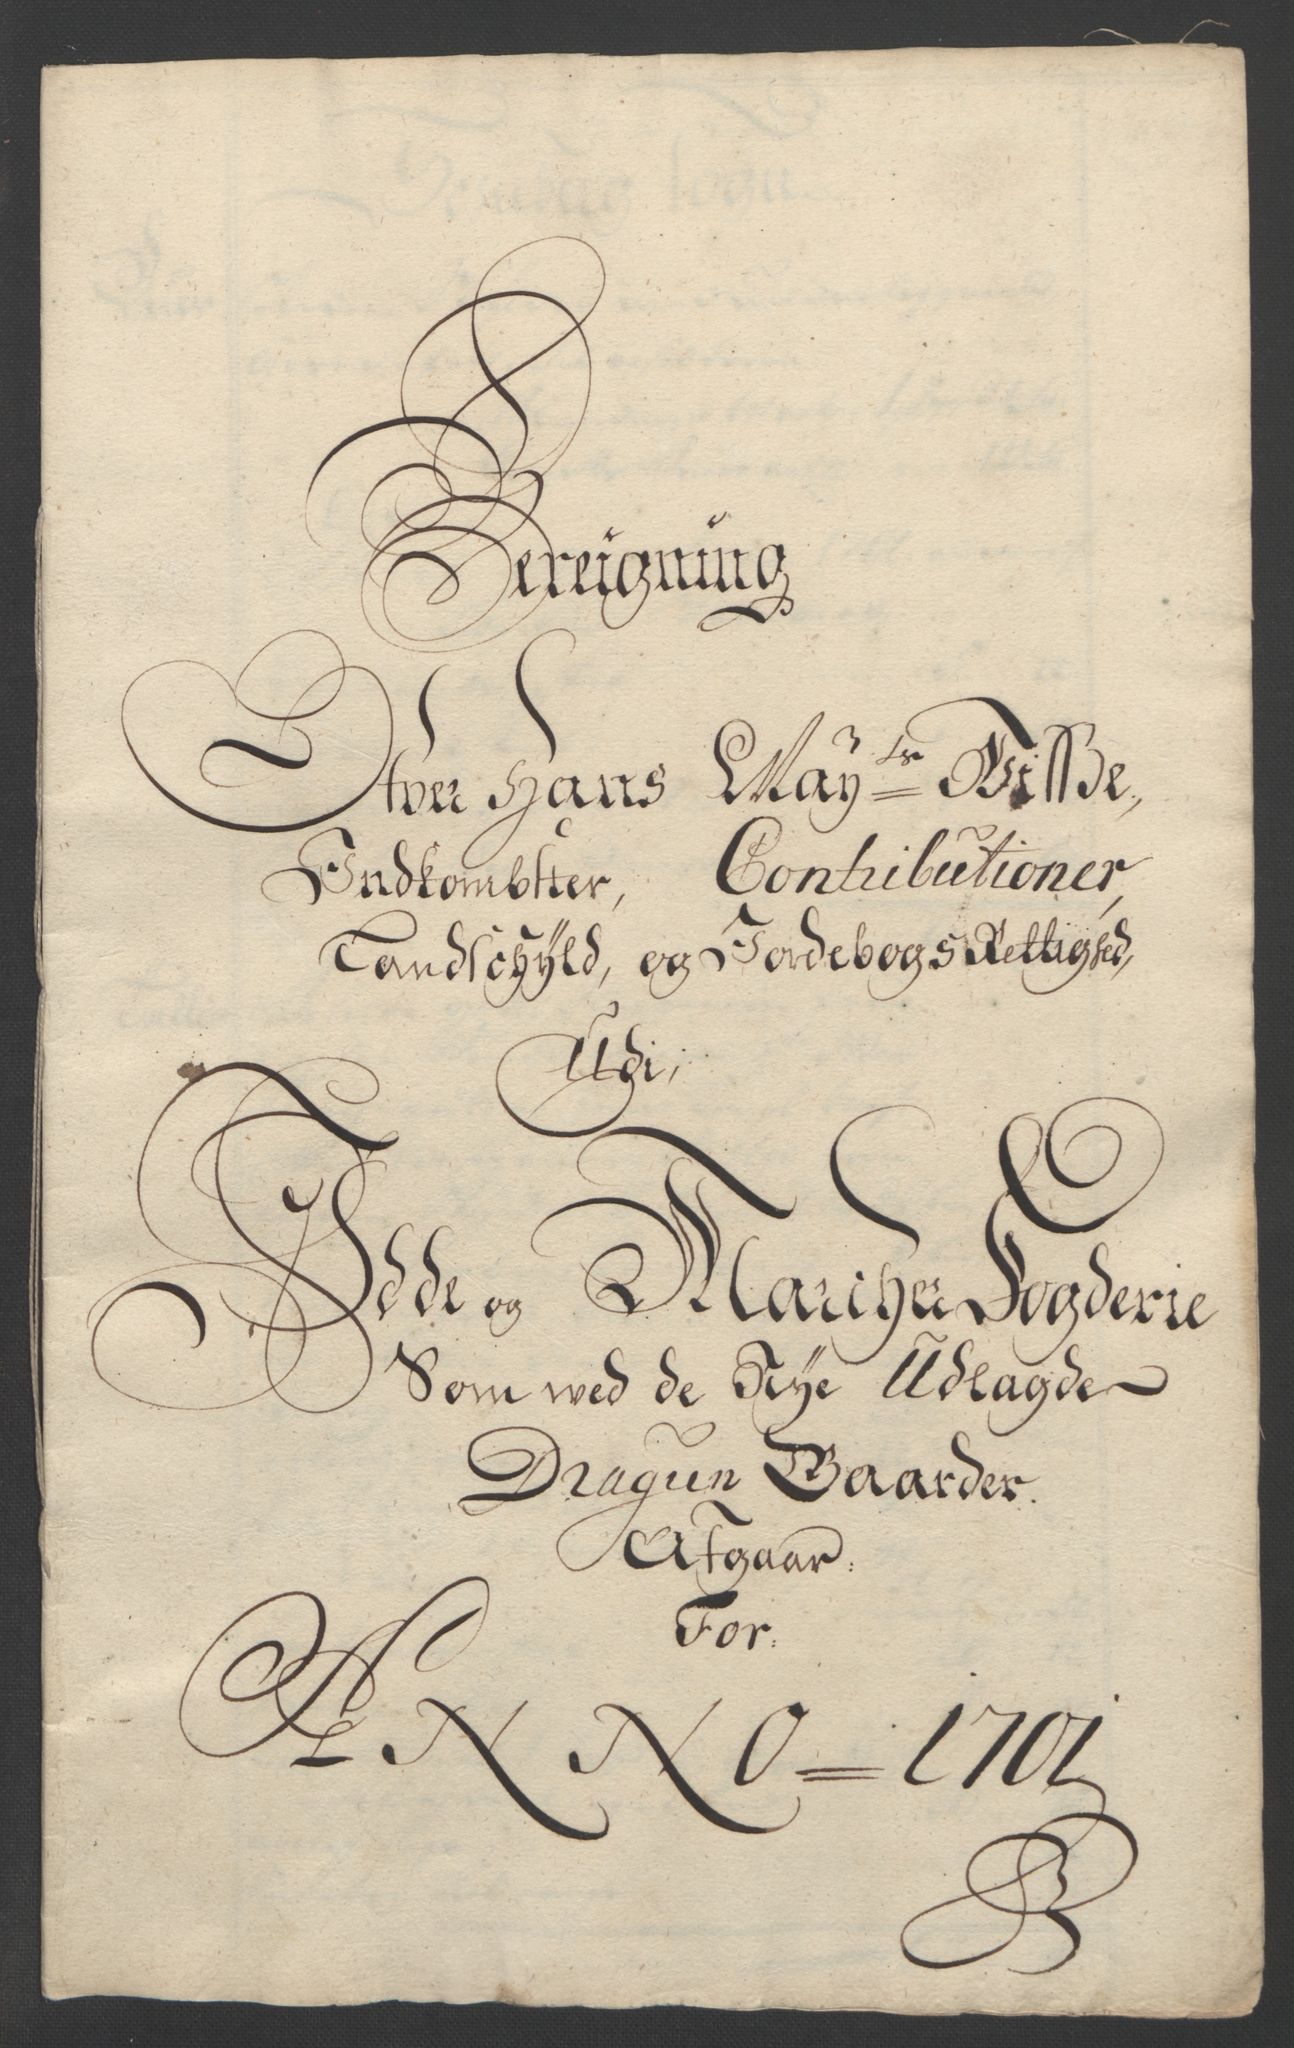 Bereigning
Ofver Hans May.ts Visse,
Indkombster, Contributioner,
Landschyld, og Jordebogs Rettighed,
Udi,
Idde og Marcher Fogderie
Som wed de Nye Udlagde
Dragun Gaarder.
Afgaar.
For.
ANNO = 1701